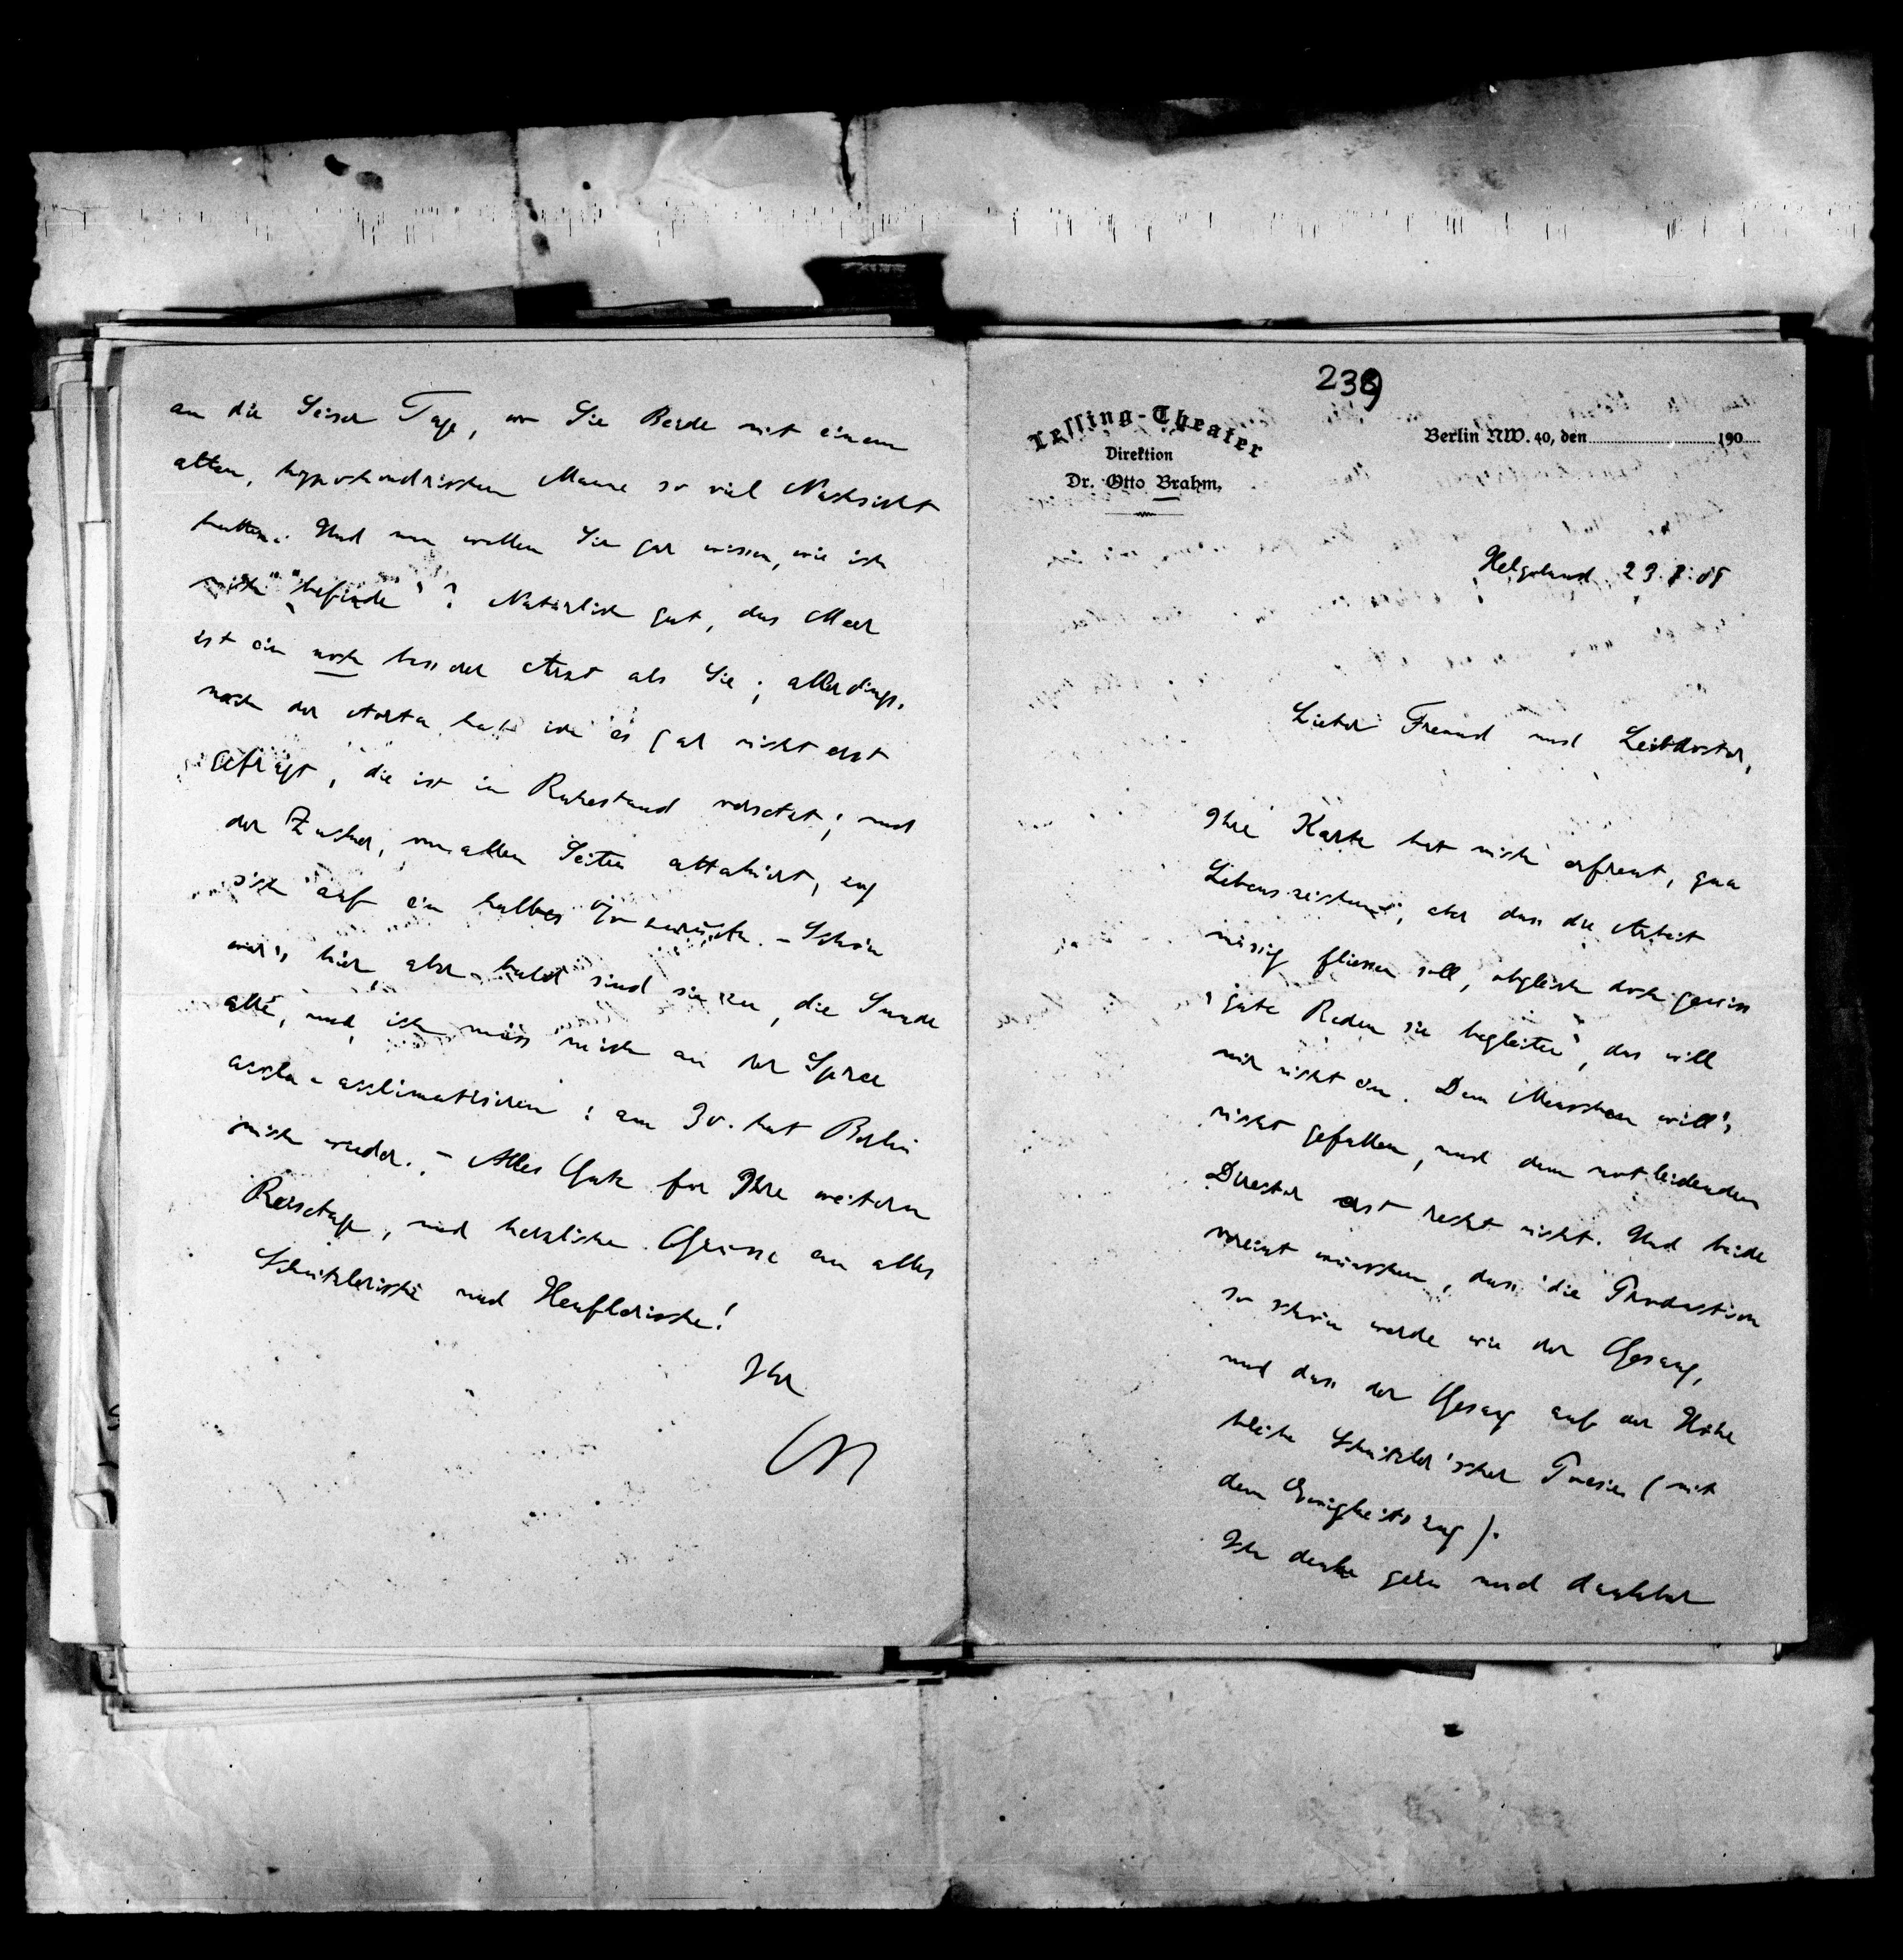 239
Lessing-Theater
Direktion
Dr. Otto Brahm.
Berlin NW. 40, den 190
Helgoland 23. 08
Lieber Freund und Leibdoctor,
Ihre Karte hat mich erfreut, qua
Lebenszeichen, aber dass die Arbeit
mässig fliessen soll, obgleich doch gewiss
„gute Reden sie begleiten“, das will
mir nicht ein. Dem Menschen will's
nicht gefallen, und dem notleidenden
Director erst recht nicht. Und beide
vereint wünschen, dass die Production
so schön werde wie der Gesang,
und dass der Gesang auf der Höhe
bleibe Schnitzler'scher Poesie (mit
dem Ewigkeitszug).
Ich denke gern und dankbar
an die Seiser Tage, wo Sie Beide mit einem
alten, hypochondrischen Manne so viel Nachsicht
hatten. Und nun wollen Sie gar wissen, wie ich
mich „befinde“? Natürlich gut, das Meer
ist ein noch besserer Arzt als Sie; allerdings,
nach der Aorta hab ich es gar nicht erst
gefragt, die ist in Ruhestand versetzt; und
der Zucker, von allen Seiten attakirt, zog
sich auf ein halbes % zurück. – Schön
war's hier, aber bald sind sie nu, die Sunde
alle, und ich muss mich an der Spree
accla- acclimatisiren: am 30. hat Berlin
mich wieder. – Alles Gute für Ihre weitern
Reisetage, und herzliche Grüsse an alles
Schnitzlerische und Heuflerische!
Ihr